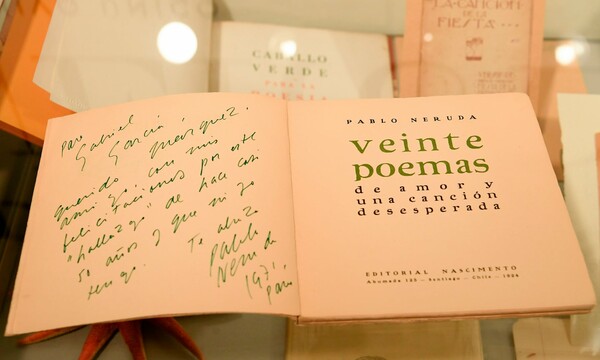 CABALLO
VERDE
PARA LA
POESIA
LA CANCION
DE LA
FIESTA...
para
Gabriel
García Márquez,
querido
amigo, con mis
felicitaciones por este
"hallazgo" de hace casi
50 años y que ni yo
tengo. Te abraza
Pablo
Neruda
1971
Paris
PABLO NERUDA
veinte
poemas
de amor y
una canción
desesperada
EDITORIAL NASCIMENTO
Ahumada 125 - Santiago - Chile - 1924